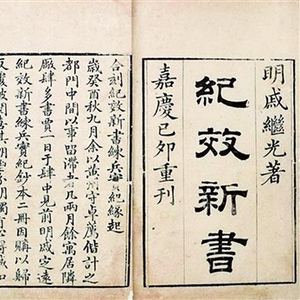 明戚繼光著
紀效新書
嘉慶己卯重刊
合刻紀效新書練兵實紀緣起
歲癸酉秋九月余以黃州守卓薦偕計之
都門中間以事留滯者凡兩月餘寓居隣
厰肆多書賈一日于肆中見前明戚定遠
紀效新書練兵實紀鈔本二冊因購以歸